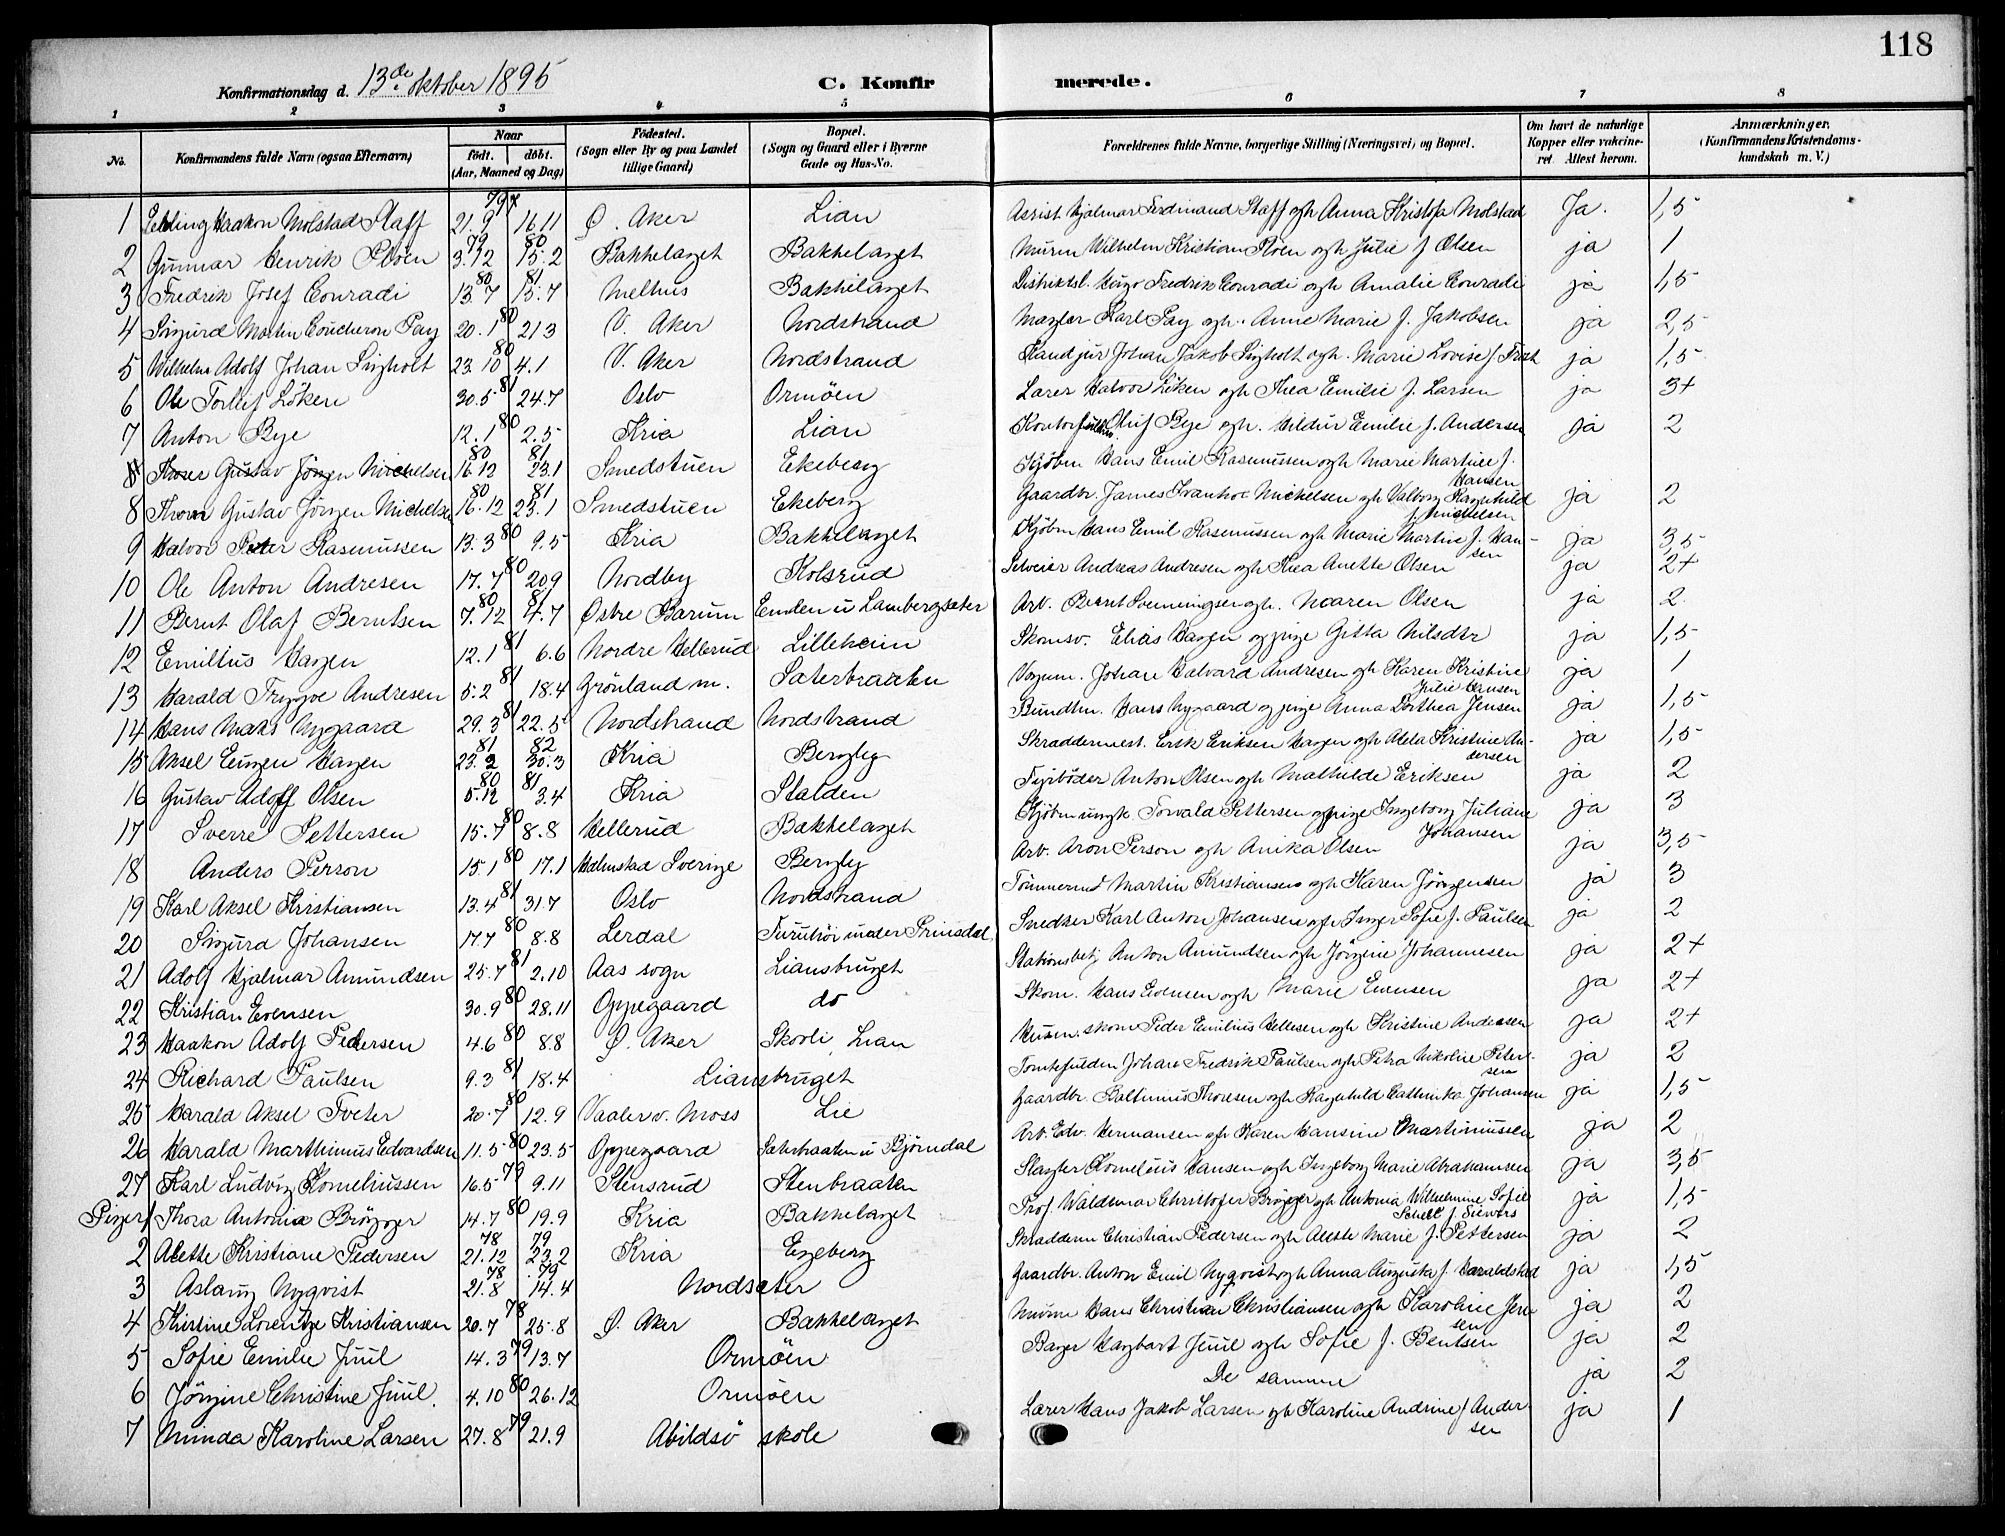 118
Konfirmationsdag d. 13de oktober 1895 C. Konfirmerede.
1 2 3 4 5 6 7 8
No. Konfirmandens fulde Navn (ogsaa Efternavn) Naar født. døbt. (Aar, Maaned og Dag) Födested. (Sogn eller By og paa Landet tillige Gaard) Bopæl. (Sogn og Gaard eller i Byerne Gade og Hus-No. Forældrenes fulde Navne, borgerlige Stilling (Næringsvei) og Bopæl. Om havt de naturlige Kopper eller vakcineret. Attest herom. Anmærkninger. (Konfirmandens Kristendomskundskab m. V.)
1 Haakon Molstad Staff 21.9 79 16.11 Ø. Aker Lian Assist. Hjalmar Ferdinand Staff ogh Anna Molstad Ja. 1,5
2 Gunnar Henrik Ploen 3.12 79 15.2 80 Bakkelaget Bakkelaget Murm Wilhelm Kristian Ploen ogh Julie f Olsen ja 1
3 Fredrik Josef Conradi 13.7 80 15.7 81 Melhus Bakkelaget Distriktsl. Hugo Fredrik Conradi ogh Amalie Conradi ja 1,5
4 Sigurd Martin Coucheron Pay 20.1 80 21.3 V. Aker Nordstrand Mægler Karl Pay ogh. Anne Marie f. Jakobsen ja 2,5
5 Wilhelm Adolf Johan Singholt 23.10 80 4.1 V. Aker Nordstrand Kand jur Johan Jakob Singholt ogh. Marie Lovise f. ja 1,5
6 Ole Torleif Löken 30.5 81 24.7 Oslo Ormöen Lærer Halvor Löken ogh Thea Emilie f. Larsen ja 3+
7 Anton Bye 12.1 80 2.5 Kria Lian Oluf Bye ogh. Hildur Emilie f. Andersen ja 2
8 Gustav Jörgen Michelsen 16.12 80 23.1 81 Smedstuen Ekeberg Kjøbm Hans Emil Rasmussen ogh Marie Martine f. Hansen
8 Thorn Gustav Jörgen Michelsen 16.12 80 23.1 81 Smedstuen Ekeberg Gaardbr. James Ivanhoe Michelsen ogh Valborg Ragnhild f. Michelsen ja 2
9 Halvor Peter Rasmussen 13.3 80 9.5 Kria Bakkelaget Kjøbm Hans Emil Rasmussen ogh Marie Martine f. Hansen ja 3,5
10 Ole Anton Andresen 17.7 80 20.9 Nordby Kolsrud Selveier Andreas Andresen ogh Thea Anette Olsen ja 2+
11 Bernt Olaf Berntsen 7.12 80 4.7 81 Østre Bærum Enden u Lambergsæter Arb. Bernt Svenningsen ogh. Maren Olsen ja 2
12 Emilius Hagen 12.1 81 6.6 Nordre Hellerud Lilleheim Skomsv. Elias Hagen og pige Gitta Nilsdtr ja 1,5
13 Harald Trygve Andresen 5.2 81 18.4 Grönland m. Sæterbraaten Vognm. Johan Halvard Andresen ogh Karen Kristine Julie Hansen ja 1
14 Hans Maks Nygaard 29.3 81 22.5 Nordstrand Nordstrand Bundtm. Hans Nygaard og pige Anna Dorthea Jensen ja 1,5
15 Aksel Eugen Hagen 23.2 81 30.3 82 Kria Bergly Skræddermest. Erik Eriksen Hagen ogh Alela Kristine Andersen ja 1,5
16 Gustav Adolf Olsen 5.12 80 3.4 81 Kria Stalden Fyrböder Anton Olsen ogh Mathilde Eriksen ja 2
17 Sverre Pettersen 15.7 80 8.8 Hellerud Bakkelaget Kjøbm ungk Torvald Pettersen og pige Ingeborg Juliane Johansen ja 3
18 Anders Person 15.1 80 17.1 Halmstad Sverige Bergly Arb. Aron Person ogh Anika Olsen ja 3,5
19 Karl Aksel Kristiansen 13.4 81 31.7 Oslo Nordstrand Tömmermd Martin Kristiansen ogh Karen Jörgensen ja 3
20 Sigurd Johansen 17.7 80 8.8 Lerdal Furuhöi under Prinsdal Snedker Karl Anton Johansen ogh Inger Sofie f. Paulsen ja 2
21 Adolf Hjalmar Amundsen 25.7 81 2.10 Aas sogn Liansbruget Stationsbetj Anton Amundsen ogh Jörgine Johannesen ja 2+
22 Kristian Evensen 30.9 80 28.11 Oppegaard do Skom. Hans Evensen ogh Marie Evensen ja 2+
23 Haakon Adolf Pedersen 4.6 80 8.8 Ø. Aker Skovli Lian Husm. skom Peder Emilius Hellesen ogh Kristine Andersen ja 2+
24 Richard Paulsen 9.3 81 18.4 Liansbruget Tomtefulden Johan Fredrik Paulsen ogh Petra Nikoline Petersen ja 2
25 Harald Aksel Tveter 20.7 80 12.9 Vaaler v. Moss Lie Gaardbr. Baltinius Thoresen ogh Ragnhild Cathinka Johansen ja 1,5
26 Harald Marthinius Edvardsen 11.5 80 23.5 Oppegaard Sæterbraaten u Björndal Arb. Edv. Hermansen ogh Karen Hansine Martiniussen ja 2
27 Karl Ludvig Korneliussen 16.5 79 9.11 Stensrud Stenbraaten Slagter Kornelius Hansen ogh Ingeborg Marie Abrahamsen ja 3,5
Piger 1 Thora Antonia Brögger 14.7 80 19.9 Kria Bakkelaget Prof Waldemar Christofer Brögger ogh Antonia Wilhelmine Sofie Schelt f. Siewers ja 1,5
2 Alette Kristiane Pedersen 21.12 78 23.2 79 Kria Egeberg Skrædderm Christian Pedersen ogh Alette Marie f. Pettersen ja 2
3 Aslaug Nyqvist 21.8 78 14.4 79 Nordsæter Gaardbr. Anton Emil Nyqvist ogh Anna Augusta f. Haraldstad ja 1,5
4 Kristine Lorentze Kristiansen 20.7 78 25.8 Ø. Aker Bakkelaget Murm Hans Christian Christiansen ogh Karoline Jensen ja 2
5 Sofie Emilie Juul 14.3 79 13.7 Ormöen Bager Hagbart Juul ogh Sofie f. Bentsen ja 2
6 Jörgine Christine Juul. 4.10 80 26.12 Ormöen De samme ja 2
7 Minda Karoline Larsen 27.8 79 21.9 Abildsö skole Lærer Hans Jakob Larsen ogh Karoline Andrine f Andersen ja 1